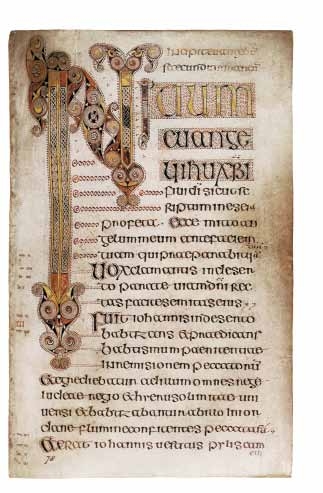 INITIUM
euange
lii ihu xpi
filii di sicut sc
riptum in esei
profeta ecce mitto an
gelum meum ante faciem
tuam qui praeparabit ui
Uox clamantis in deser
to parate uiam dni rec
tas facite semitas eius
Fuit iohannis in deserto
babtizans et praedicans
babtismum paenitentiae
in remisionem peccatorū
et egrediebatur ad illum omnes
iudeae regio et hierusolimitae uni
uersi et babtizabantur ab illo in ior
dane flumine confitentes peccata sū
et erat iohannis uestitus pylis cam
eli